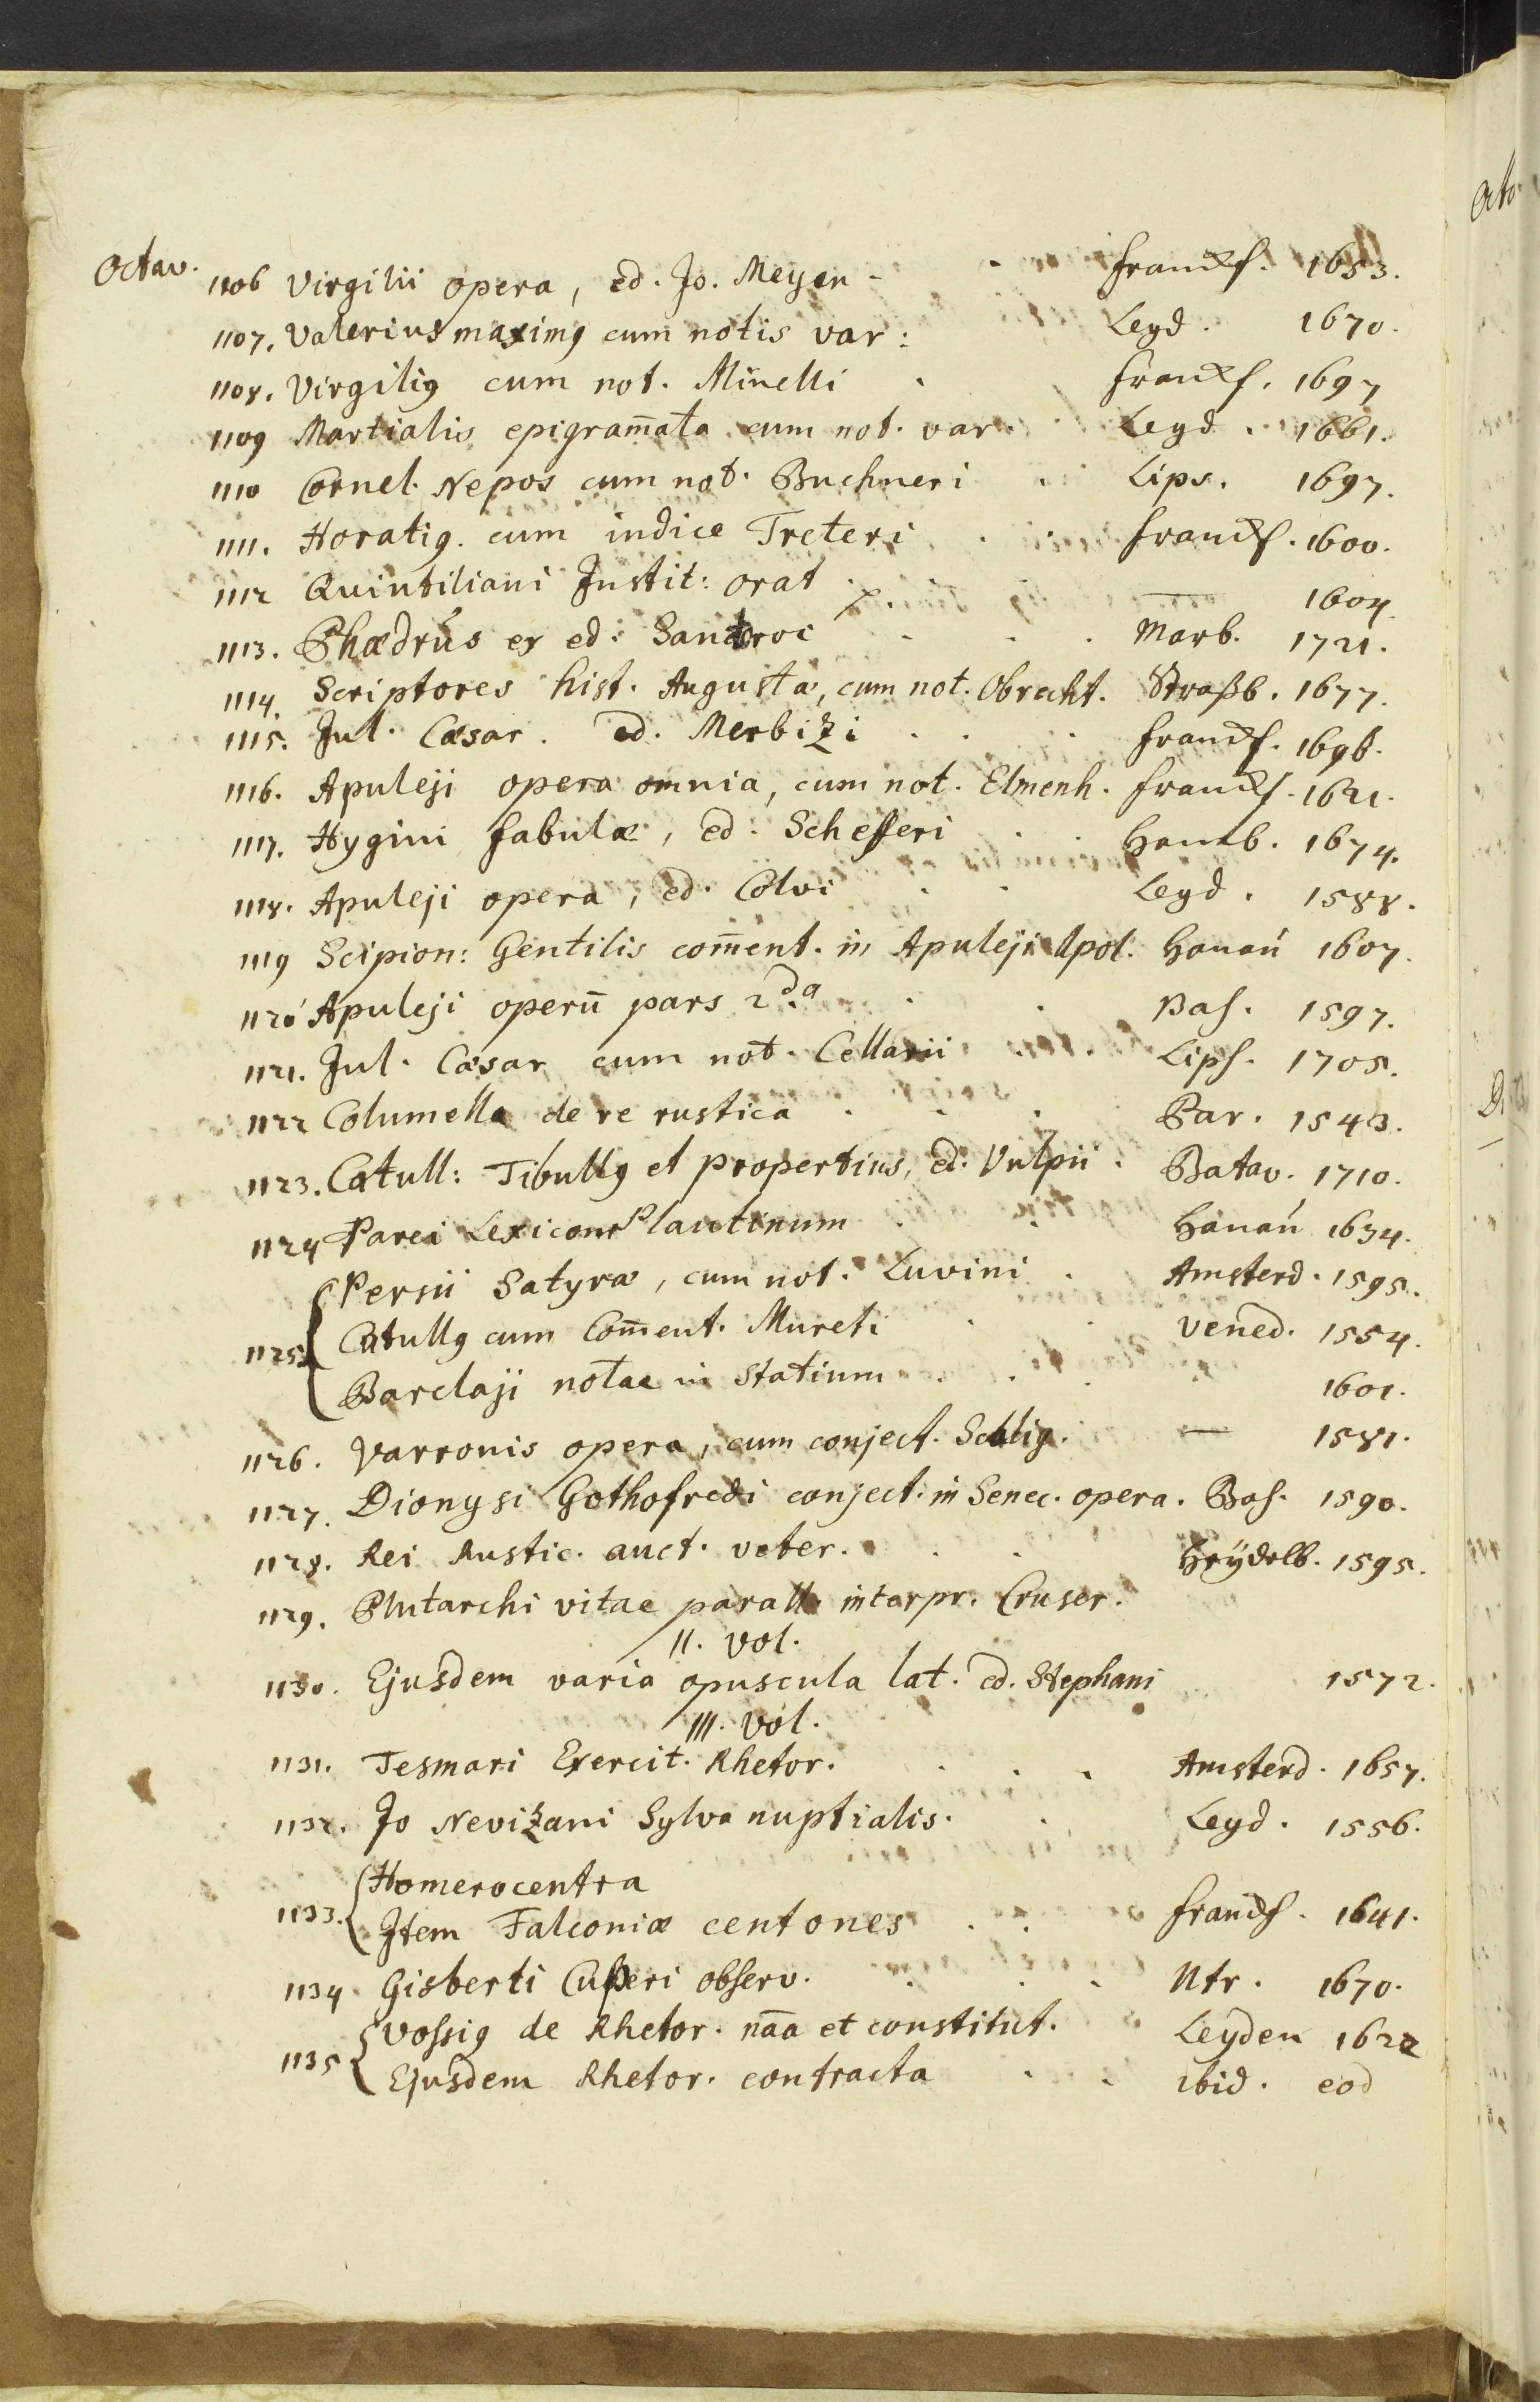 Octav.
1106 Virgilii opera, ed. Jo. Meyen - Franckf. 1653.
1107. Valerius maximꝰ cum notis var: Leyd. 1670.
1108. Virgiliꝰ cum not. Minelli . Franckf. 1697
1109 Martialis epigram̄ata cum not. var. Leyd. 1661.
1110 Cornel. Nepos cum not. Buchneri . Lips. 1697.
1111. Horatiꝰ. cum indice Treteri . . Franckf. 1600.
1112 Quintiliani Instit: orat. — 1604
1113. Phædrus ex ed: . . . Marb. 1721.
1114. Scriptores hist. Augustæ, cum not. Obrecht. Straßb. 1677.
1115. Jul. Cæsar. ed. Merbizi . . . Franckf. 1696.
1116. Apuleji opera omnia, cum not. Elmenh. Franckf. 1621.
1117. Hygini fabulæ, ed: Schefferi . . Hamb. 1674.
1118. Apuleji opera, ed. Colvi . . Leyd. 1588.
1119 Scipion: Gentilis com̄ent. in Apuleji Apol. Hanau 1607.
1120 Apuleji operū pars 2da . . Bas. 1597.
1121. Jul. Cæsar cum not. Cellarii . . Lips. 1705.
1122 Columella de re rustica . . . Par. 1543.
1123. Catull: Tibullꝰ et propertius, ed. Vulpii . Batav. 1710.
1124 Parei Lexicon Plautinum . . Hanau 1634.
Persii Satyræ, cum not. Luvini . Amsterd. 1595.
1125. Catullꝰ cum Com̄ent. Mureti . . Vened. 1554.
Barclaji notae in Statium . . . 1601.
1126. Varronis opera, cum conject. Scalig. — 1581.
1127. Dionysi Gothofredi conject. in Senec. opera. Bas. 1590.
1128. Rei Rustic. auct. veter. . . Heÿdelb. 1595.
1129. Plutarchi vitae parall. interpr. Cruser.
II. Vol.
1130. Ejusdem varia opuscula lat. ed. Stephani 1572.
III. Vol.
1131. Tesmari Exercit. Rhetor. . . . Amsterd. 1657.
1132. Jo Nevizani Sylva nuptialis. . Leyd. 1556.
Homerocentra
1133. Item Falconiæ centones . . Franckf. 1641.
1134 Gisberti Cuperi observ. . . . Utr. 1670.
Vossiꝰ de Rhetor. nāa et constitut. Leyden 1622
1135 Ejusdem Rhetor. contracta . . ibid. eod